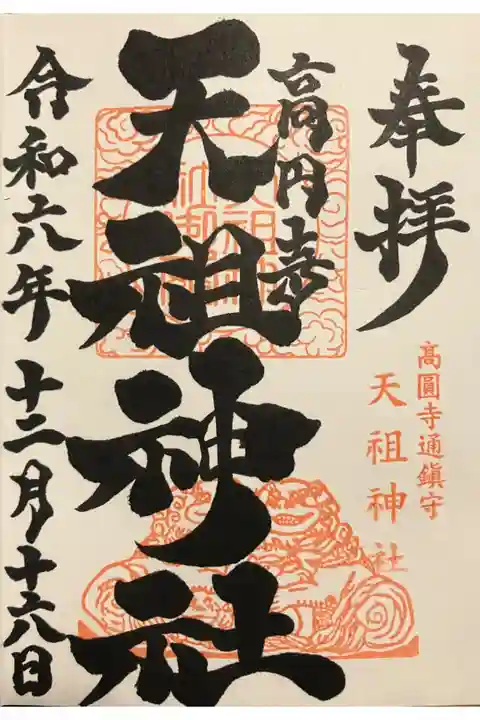 奉拝
髙圓寺通鎮守
天祖神社
高円寺
天祖神社
令和六年十二月十六日